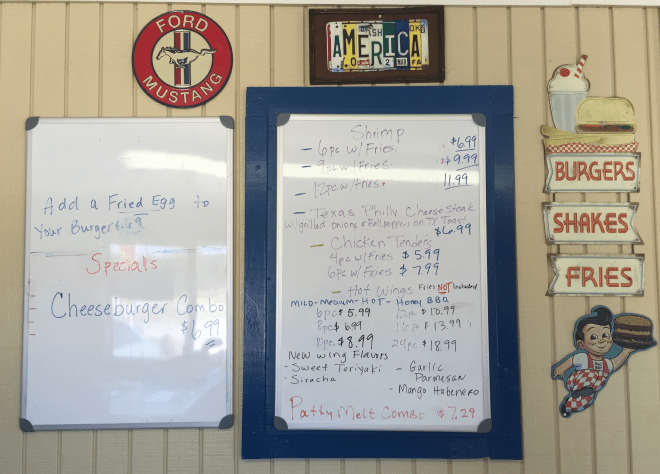 FORD
MUSTANG
AMERICA
Add a Fried Egg to
Your Burger
Specials
Cheeseburger Combo
$6.99
Shrimp
- 6pc w/Fries $6.99
- 9pc w/Fries $9.99
- 12pc w/fries 11.99
- Texas Philly Cheese Steak
w/grilled onions & Bellpeppers on TX Toast
$6.99
- Chicken Tenders
4pc w/Fries $5.99
6pc w/Fries $7.99
- Hot Wings Fries NOT Included
MILD-MEDIUM-HOT-Honey BBQ
6pc $5.99 12pc $10.99
8pc $6.99 $13.99
10pc $8.99 24pc $18.99
New Wing Flavors
- Sweet Teriyaki - Garlic
- Siracha Parmesan
- Mango Habenero
Patty Melt Combo $7.29
BURGERS
SHAKES
FRIES